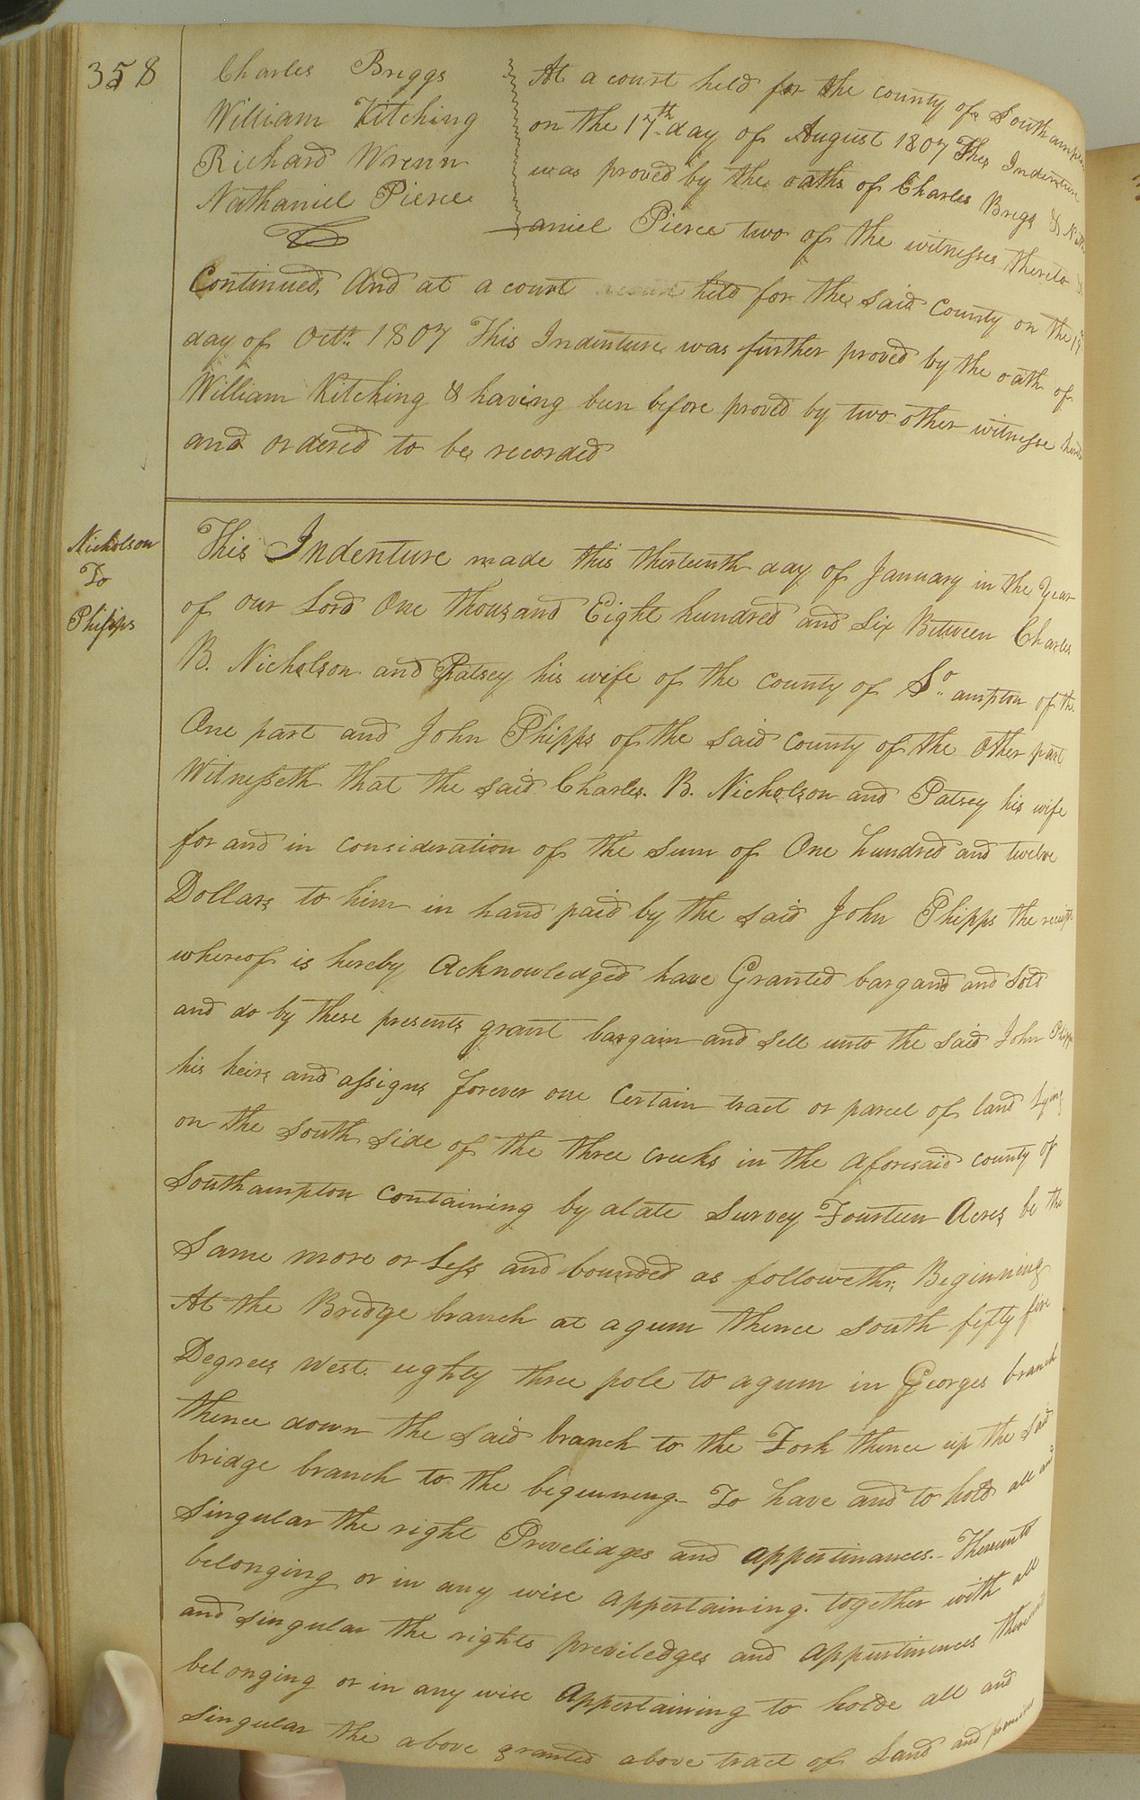 358
Charles Briggs
William Kitching
Richard Wrenn
Nathaniel Pierce
At a court held for the county of Southampton
on the 17th day of August 1807 This Indenture
was proved by the oaths of Charles Brigs & Nath
aniel Pierce two of the witnesses thereto &
Continued, And at a court held for the said County on the 19
day of Octr. 1807 This Indenture was further proved by the oath of
William Kitching & having been before proved by two other witnesse
and ordered to be recorded
Nicholson
To
Phipps
This Indenture made this thirteenth day of January in the Year
of our Lord One thousand Eight hundred and Six Between Charles
B. Nicholson and Patsey his wife of the county of So. ampton of the
One part and John Phipps of the said county of the Other part
Witnesseth that the said Charles. B. Nicholson and Patsey his wife
for and in consideration of the sum of One hundred and twelve
Dollars to him in hand paid by the said John Phipps the receipt
whereof is hereby Acknowledged have Granted bargand and Sold
and do by these presents grant bargain and Sell unto the said John Phipps
his heirs and assigns forever one Certain tract or parcel of land Lying
on the South Side of the three creeks in the aforesaid county of
Southampton Containing by alate Survey Fourteen Acres be the
Same more or Less and bounded as followeth; Beginning
At the Bridge branch at agum thence South fifty five
Degrees West. eighty three pole to agum in Georges branch
thence down the said branch to the Fork thence up the said
bridge branch to the beginning- To have and to hold all and
Singular the right Proveliages and appertinances.- Thereunto
belonging or in any wise appertaining. together with all
and singular the rights previledges and appurtinences
belonging or in any wise appertaining to holde all and
Singular the above granted above tract of Land and premises